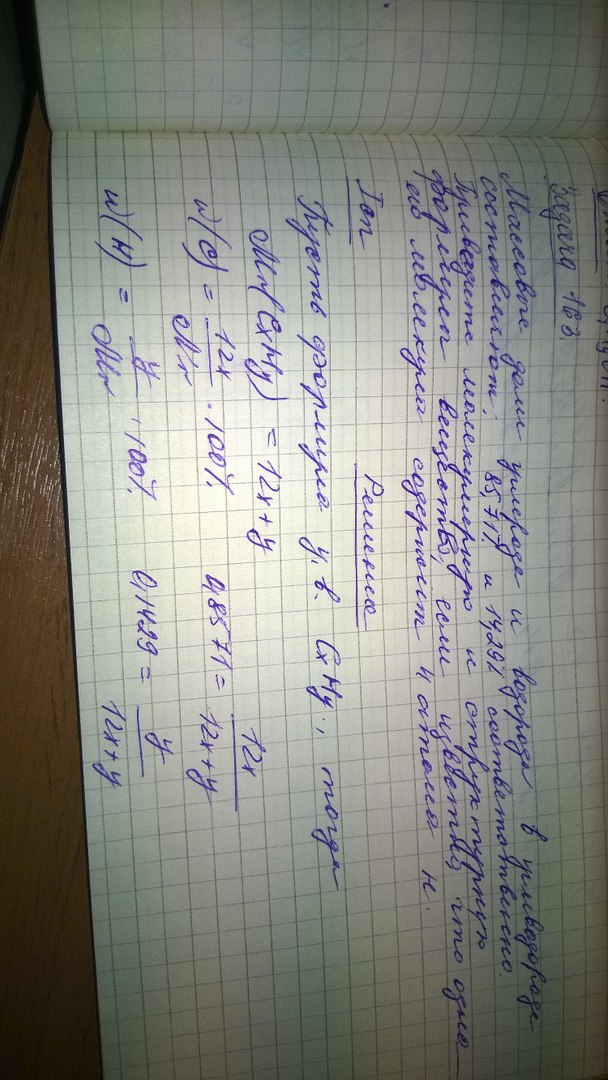 Задача №63.
Массовые доли углерода и водорода в углеводороде
составляют: 85,71% и 14,29% соответственно.
Приведите молекулярную и структурную
формулы вещества, если известно, что одна
его молекула содержит 4 атома H.
I сп
Решение
Пусть формула у.в. CxHy, тогда
Mr(CxHy) = 12x+y
w(C) = 12x/Mr · 100% 0,8571 = 12x/12x+y
w(H) = y/Mr · 100% 0,1429 = y/12x+y